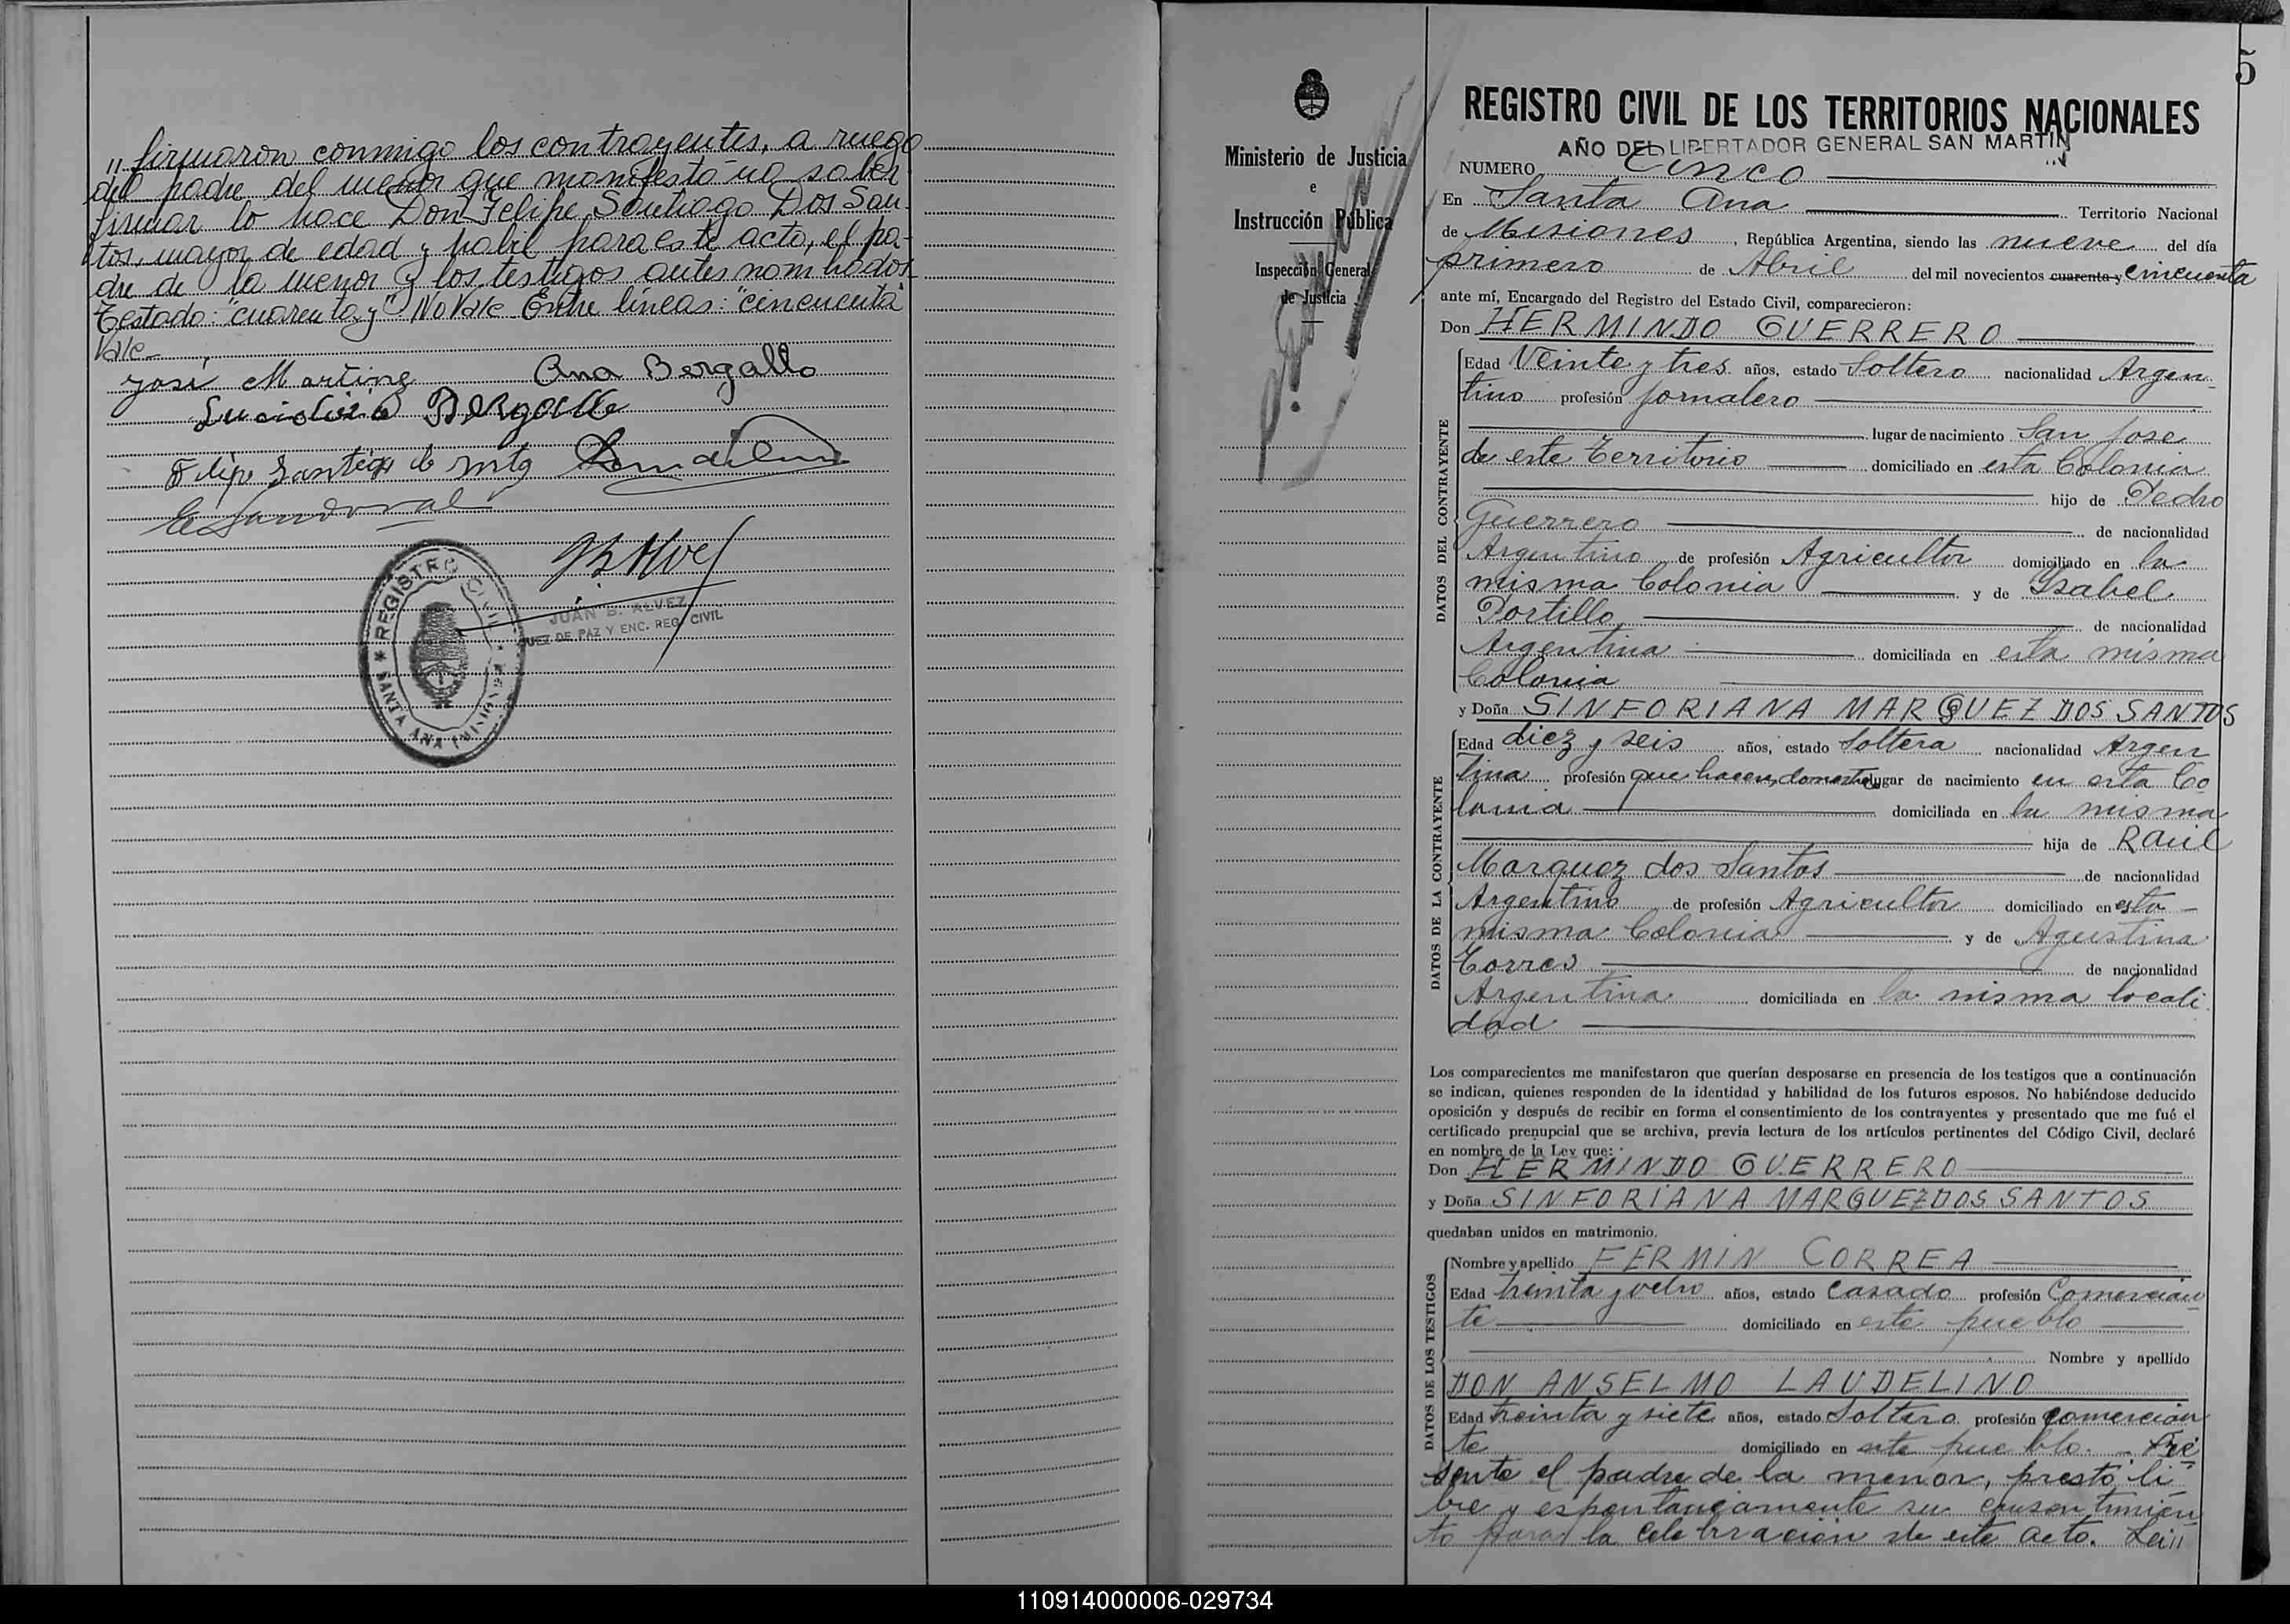 " firmaron conmigo los contrayentes, a ruego
del padre del menor que manifestó no saber
firmar lo hace Don Felipe Santiago Dos San-
tos, mayor de edad y habil para este acto, el pa-
dre de la menor y los testigos antes nombrados
Testado: "cuarenta y" No Vale Entre lineas: "cincuenta"
Vale-
José Martinez Ana Bergallo
Bergallo
Santiago
E Sandoval
REGISTRO CIVIL
SANTA ANA (MISIONES)
JUAN B. ALVEZ
JUEZ DE PAZ Y ENC. REG. CIVIL
5
Ministerio de Justicia
e
Instrucción Pública
Inspección General
de Justicia
REGISTRO CIVIL DE LOS TERRITORIOS NACIONALES
AÑO DEL LIBERTADOR GENERAL SAN MARTIN
NUMERO Cinco
En Santa Ana Territorio Nacional
de Misiones, República Argentina, siendo las nueve del día
primero de Abril del mil novecientos cuarenta y cincuenta
ante mí, Encargado del Registro del Estado Civil, comparecieron:
Don HERMINDO GUERRERO
DATOS DEL CONTRAYENTE
Edad Veinte y tres años, estado Soltero nacionalidad Argen-
tino profesión jornalero
lugar de nacimiento San José
de este Territorio domiciliado en esta Colonia
hijo de Pedro
Guerrero de nacionalidad
Argentino de profesión Agricultor domiciliado en la
misma Colonia y de Ysabel
Portillo de nacionalidad
Argentina domiciliada en esta misma
Colonia
y Doña SINFORIANA MARQUEZ DOS SANTOS
DATOS DE LA CONTRAYENTE
Edad diez y seis años, estado Soltera nacionalidad Argen
tina profesión que hacer, domest. lugar de nacimiento en esta Co
lonia domiciliada en la misma
hija de Raúl
Marquez dos Santos de nacionalidad
Argentino de profesión Agricultor domiciliado en esta
misma Colonia y de Agustina
Torres de nacionalidad
Argentina domiciliada en la misma locali
dad
Los comparecientes me manifestaron que querían desposarse en presencia de los testigos que a continuación
se indican, quienes responden de la identidad y habilidad de los futuros esposos. No habiéndose deducido
oposición y después de recibir en forma el consentimiento de los contrayentes y presentado que me fué el
certificado prenupcial que se archiva, previa lectura de los artículos pertinentes del Código Civil, declaré
en nombre de la Ley que:
Don HERMINDO GUERRERO
y Doña SINFORIANA MARQUEZ DOS SANTOS
quedaban unidos en matrimonio.
DATOS DE LOS TESTIGOS
Nombre y apellido FERMIN CORREA
Edad treinta y ocho años, estado Casado profesión Comercian
te domiciliado en este pueblo
Nombre y apellido
DON ANSELMO LAUDELINO
Edad treinta y siete años, estado Soltero profesión Comercian
te domiciliado en este pueblo. - Pre
sente el padre de la menor, prestó li
bre y espontaneamente su consentimien
to para la celebracion de este acto. Lei"
110914000006-029734